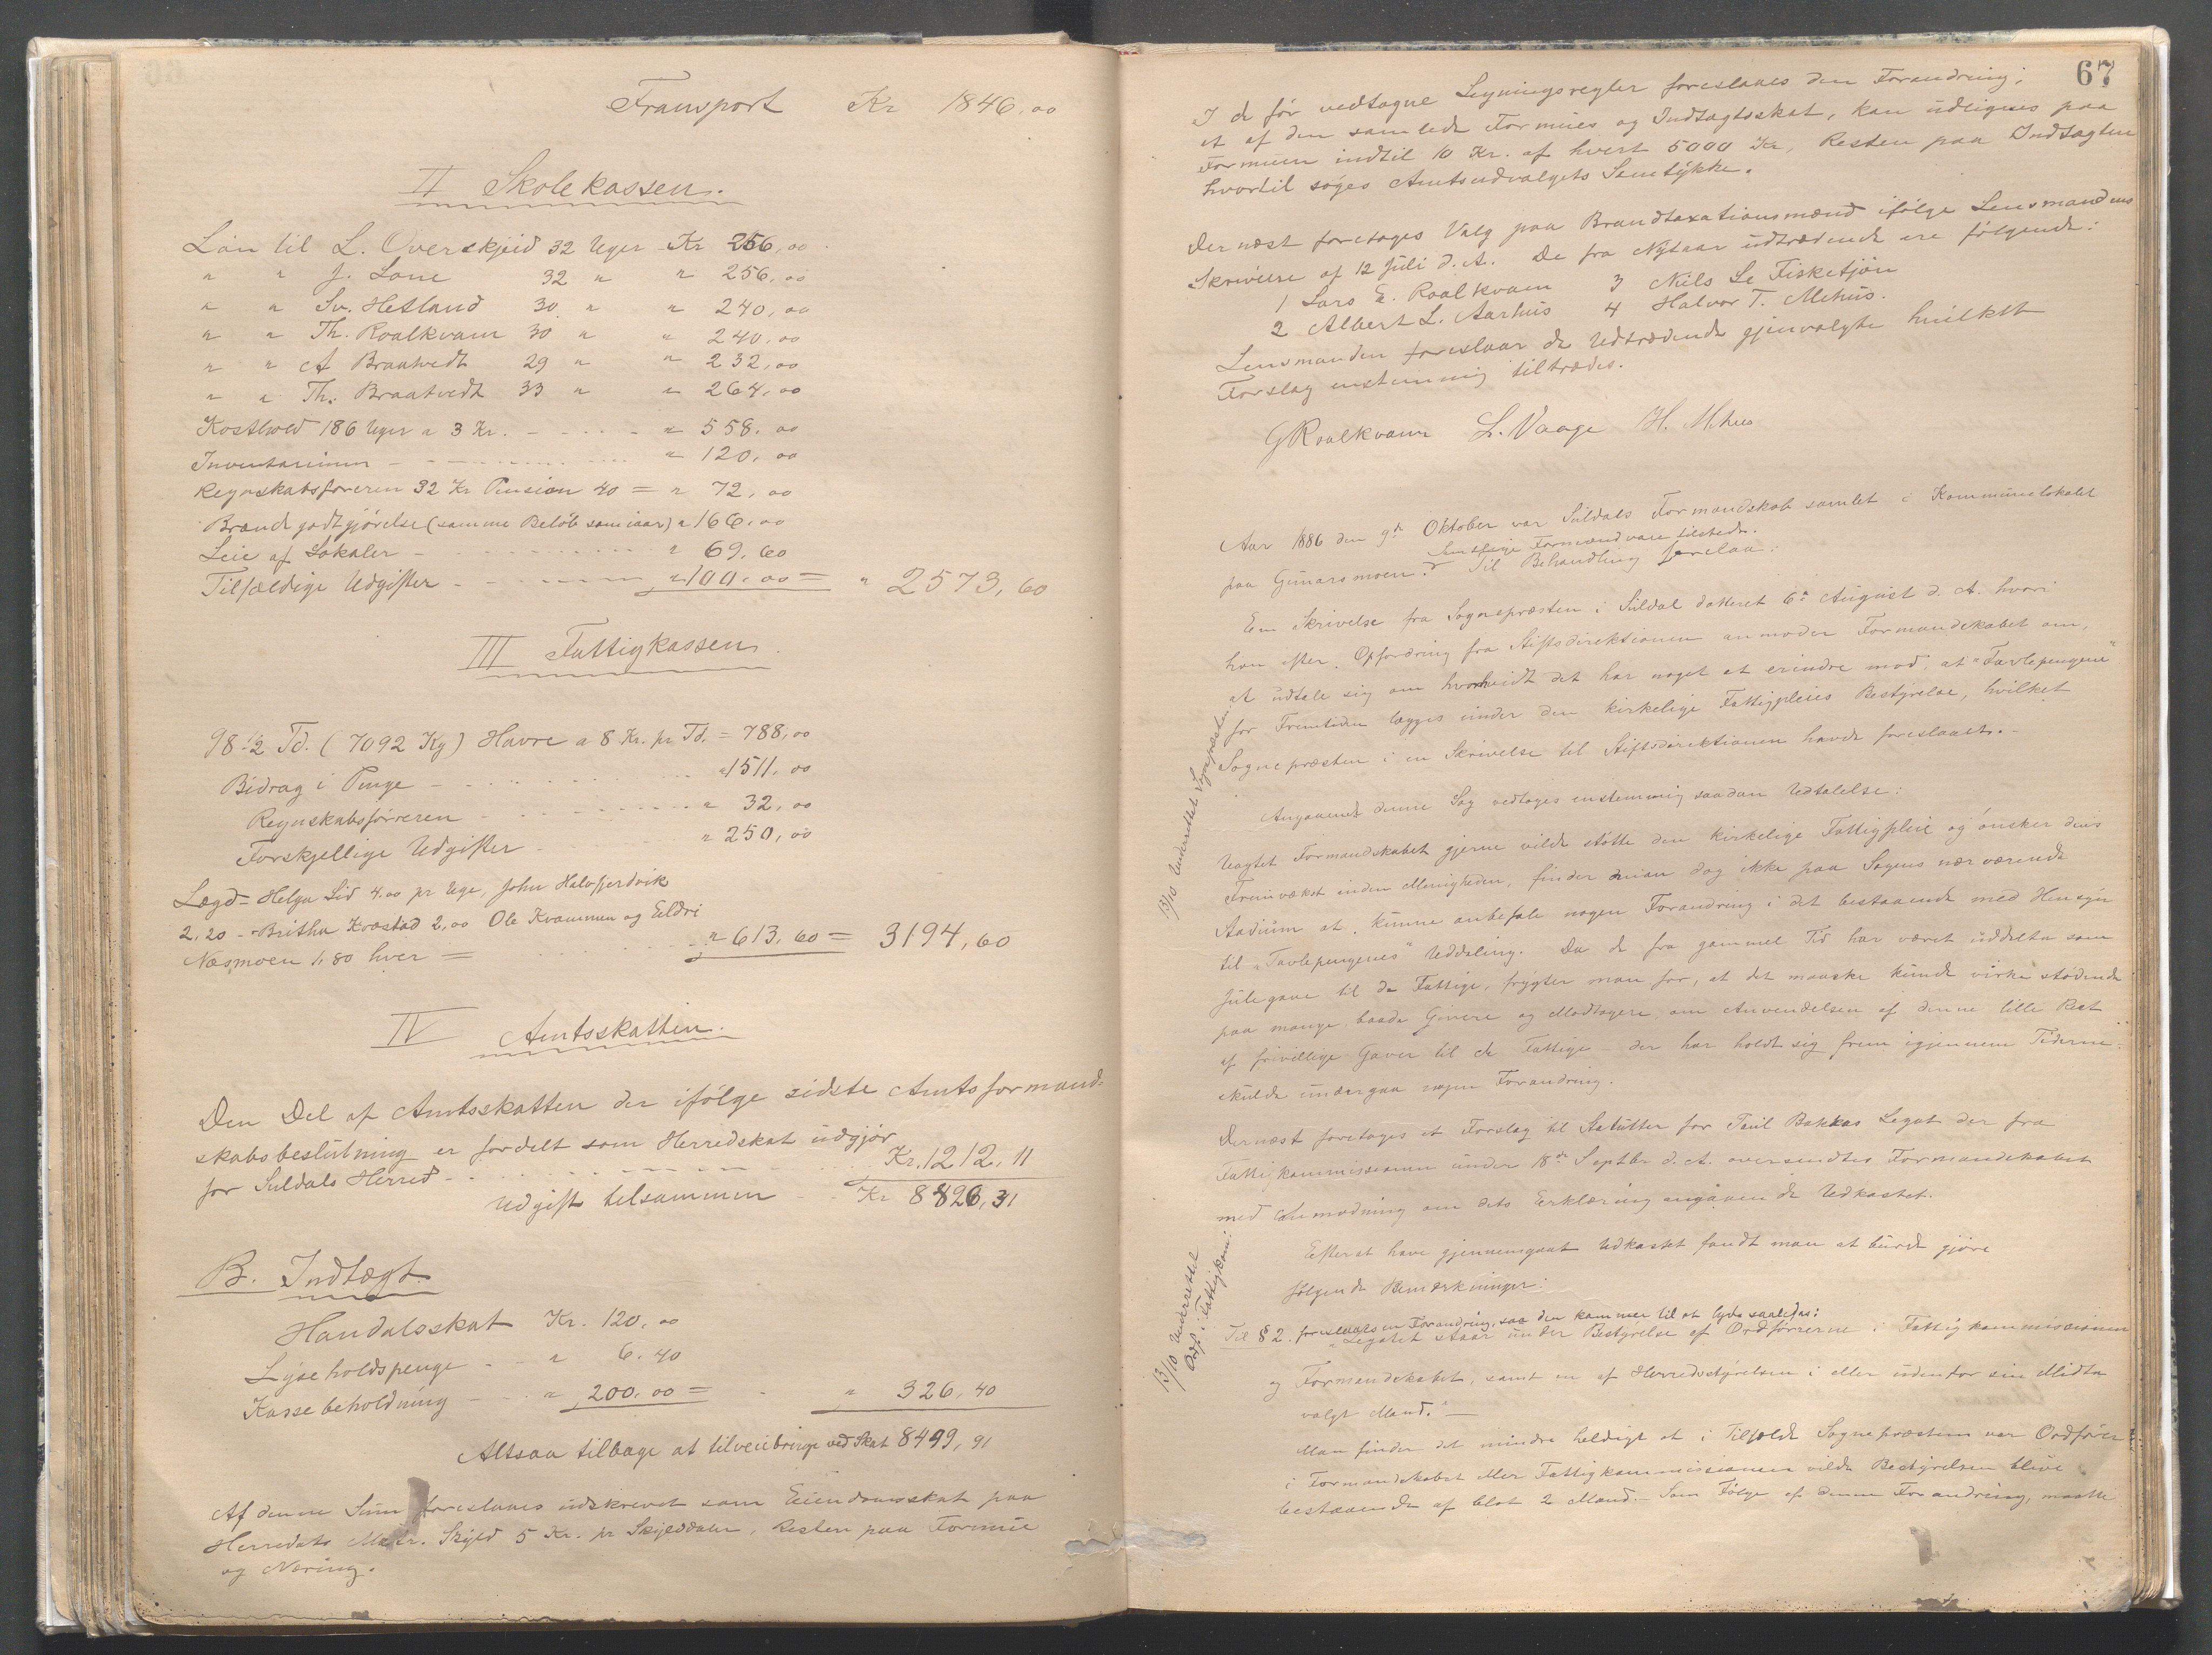 Transport Kr 1846,00
II Skolekassen.
Løn til L. Overskjeid 32 Uger Kr 256,00
" " J. Lone 32 " " 256,00
" " Sv. Hetland 30 " " 240,00
" " Th. Roalkvam 30 " " 240,00
" " A Braatvedt 29 " " 232,00
" " Th. Braatvedt 33 " " 264,00
Kosthold 186 Uger a 3 Kr. - " 558,00
Inventarium - " 120,00
Regnskabsføreren 32 Kr Pension 40 = " 72,00
Brændegodtgjørelse (samme Beløb som iaar) " 166,00
Leie af Lokaler - " 69,60
Tilfældige Udgifter - " 100,00 = " 2573,60
III Fattigkassen.
98 1/2 Td. (7092 Kg) Havre a 8 Kr. pr Td. = 788,00
Bidrag i Penge - " 1511,00
Regnskabsføreren - " 32,00
Forskjellige Udgifter - " 250,00
Lægd - Helga Lid 4.00 pr Uge, John Halvfjerdvik
2,20 - Britha Krostad 2,00 Ole Kvammen og Eldri
Næsmoen 1,80 hver = " 613,60 = 3194,60
IV Amtsskatten.
Den Del af Amtsskatten der ifølge sidste Amtsformand-
skabsbeslutning er fordelt som Herredskat udgjør
for Suldals Herred - Kr. 1212,11
Udgift tilsammen - Kr 8826,31
B. Indtægt
Handelsskat Kr. 120,00
Lysholdspenge - " 6.40
Kassebeholdning - " 200,00 = " 326,40
Altsaa tilbage at tilveiebringe ved Skat 8499,91
Af denne Sum foreslaaes udskrevet som Eiendomsskat paa
Herredets Matr. Skyld 5 Kr. pr Skylddaler, Resten paa Formue
og Næring.
67
I de før vedtagne Ligningsregler foreslaaes den Forandring;
at af den samlede Formues og Indtægtsskat, kan udlignes paa
Formuen indtil 10 Kr. af hvert 5000 Kr, Resten paa Indtægten
hvortil søges Amtsudvalgets Samtykke.
Dernæst foretoges Valg paa Brandtaxationsmænd ifølge Lensmandens
Skrivelse af 12 Juli d. A. De fra Nytaar udtrædende ere følgende:
1 Lars E. Roalkvam 3 Nils L. Fisketjøn
2 Albert L. Aarhus 4 Halvor T. Mehus.
Lensmanden foreslaar de Udtrædende gjenvalgte hvilket
Forslag enstemmig tiltrædes.
GRoalkvam L. Vaage H. Mehus
Aar 1886 den 9de Oktober var Suldals Formandskab samlet i Kommunelokalet
Samtlige Formænd vare tilstede.
paa Gunarsmoen. Til Behandling forelaa:
En Skrivelse fra Sognepræsten i Suldal dateret 6te August d. A. hvori
han efter Opfordring fra Stiftsdirektionen anmoder Formandskabet om,
at udtale sig om hvorvidt det har noget at erindre mod, at "Tavlepengene"
for Fremtiden lægges under den kirkelige Fattigpleies Bestyrelse, hvilket
Sognepræsten i en Skrivelse til Stiftsdirektionen havde foreslaaet. -
13/10 Underrettet Sognepræsten
Angaaende denne Sag vedtoges enstemmig saadan Udtalelse:
Uagtet Formandskabet gjerne vilde støtte den kirkelige Fattigpleie og ønsker dens
Fremvækst inden Menigheden, finder man dog ikke paa Sagens nærværende
Stadium at kunne anbefale nogen Forandring i det bestaaende med Hensyn
til "Tavlepengenes" Uddeling. Da de fra gammel Tid har været uddelte som
Julegave til de Fattige, frygter man for, at det maaske kunde virke stødende
paa mange, baade Givere og Modtagere, om Anvendelsen af denne lille Rest
af frivillige Gaver til de Fattige - der har holdt sig frem igjennem Tiderne -
skulde undergaa nogen Forandring.
Dernæst foretoges et Forslag til Statutter for Poul Bakkas Legat der fra
Fattigkommissionen under 18de Septbr d. A. oversendtes Formandskabet
med Anmodning om dets Erklæring angaaende Udkastet.
Efter at have gjennemgaaet Udkastet fandt man at burde gjøre
følgende Bemærkninger:
13/10 Underrettet
Ordf. i Fattigkom:
Til § 2. foreslaaes en Forandring, saa den kommer til at lyde saaledes:
"Legatet staar under Bestyrelse af Ordførerne i Fattigkommissionen
og Formandskabet, samt en af Herredsstyrelsen i eller udenfor sin Midte
valgt Mand." -
Man finder det mindre heldigt at i Tilfælde Sognepræsten var Ordfører
i Formandskabet eller Fattigkommissionen vilde Bestyrelsen blive
bestaaende af blot 2 Mand. - Som Følge af denne Forandring, maatte